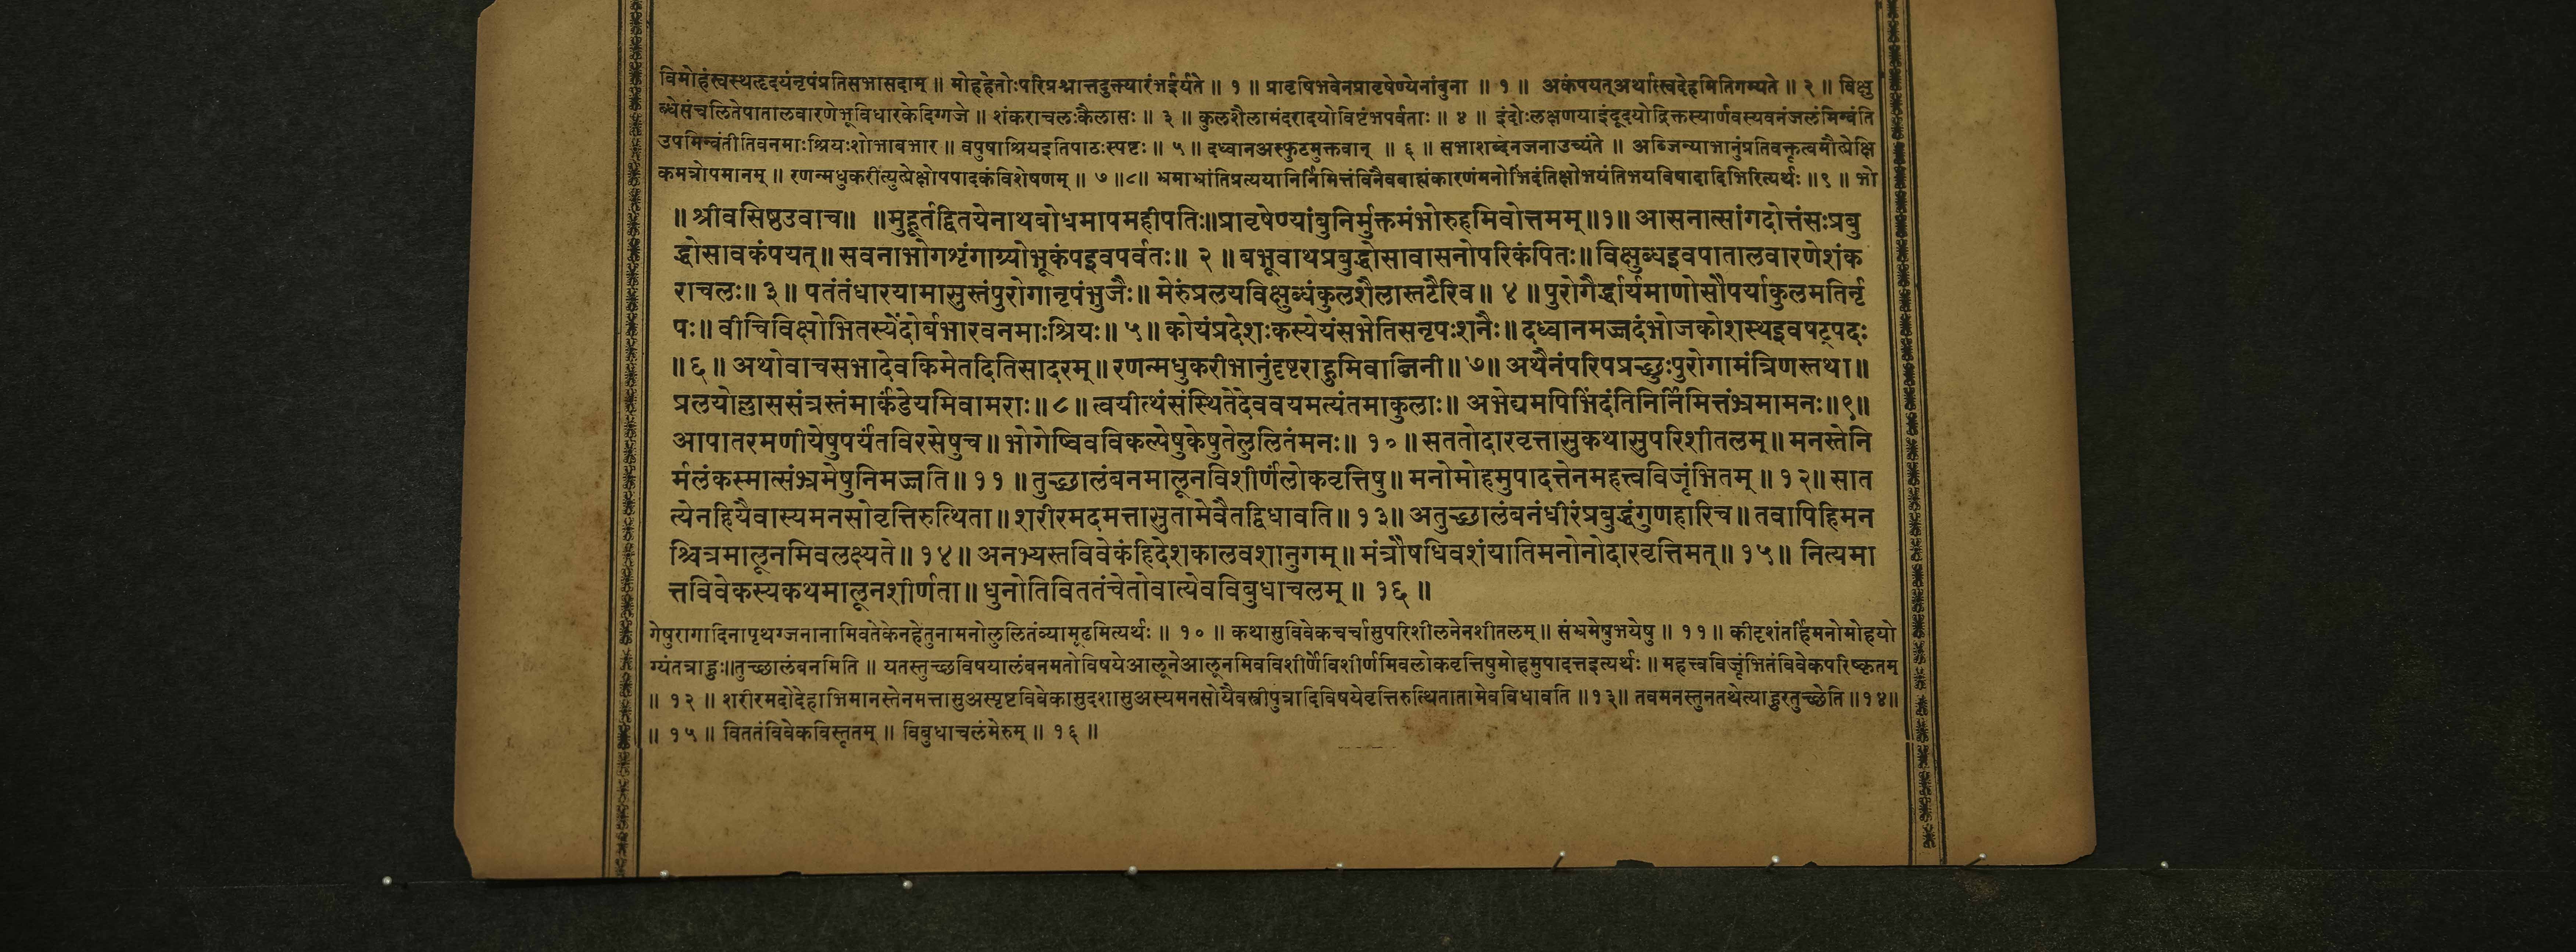 विमोहंस्वस्थहृदयंनृपंप्रतिसभासदाम् ॥ मोहहेतोःपरिप्रश्नात्तदुक्त्यारंभईर्यते ॥ १ ॥ प्रावृषिभवेनप्रावृषेण्येनांबुना ॥ १ ॥ अकंपयत्अर्थात्स्वदेहमितिगम्यते ॥ २ ॥ विक्षु
ब्धेसंचलितेपातालवारणेभूविधारकेदिग्गजे ॥ शंकराचलःकैलासः ॥ ३ ॥ कुलशैलामंदरादयोविष्टंभपर्वताः ॥ ४ ॥ इंदोःलक्षणयाइंदूदयोद्रिक्तस्यार्णवस्यवनंजलंमिन्वंति
उपमिन्वंतीतिवनमाःश्रियःशोभाबभार ॥ वपुषाश्रियइतिपाठःस्पष्टः ॥ ५ ॥ दध्वानअस्फुटमुक्तवान् ॥ ६ ॥ सभाशब्देनजनाउच्यंते ॥ अब्जिन्याभानुंप्रतिवक्तृत्वमौत्प्रेक्षि
कमत्रोपमानम् ॥ रणन्मधुकरीत्युत्प्रेक्षोपपादकंविशेषणम् ॥ ७ ॥८॥ भ्रमाभ्रांतिप्रत्ययानिर्निमित्तंविनैवबाह्यंकारणंमनोभिंदंतिक्षोभयंतिभयविषादादिभिरित्यर्थः ॥९ ॥ भो
॥ श्रीवसिष्ठउवाच॥ ॥मुहूर्तद्वितयेनाथबोधमापमहीपतिः॥प्रावृषेण्यांबुनिर्मुक्तमंभोरुहमिवोत्तमम्॥१॥ आसनात्सांगदोत्तंसःप्रबु
द्धोसावकंपयत्॥ सवनाभोगशृंगाग्र्योभूकंपइवपर्वतः॥ २ ॥ बभूवाथप्रबुद्धोसावासनोपरिकंपितः॥ विक्षुब्धइवपातालवारणेशंक
राचलः॥ ३॥ पतंतंधारयामासुस्तंपुरोगानृपंभुजैः॥ मेरुंप्रलयविक्षुब्धंकुलशैलास्तटैरिव॥ ४ ॥ पुरोगैर्द्धार्यमाणोसौपर्याकुलमतिर्नृ
पः॥ वीचिविक्षोभितस्येंदोर्बभारवनमाःश्रियः॥ ५॥ कोयंप्रदेशःकस्येयंसभेतिसनृपःशनैः॥ दध्वानमज्जदंभोजकोशस्थइवषट्पदः
॥ ६॥ अथोवाचसभादेवकिमेतदितिसादरम्॥ रणन्मधुकरीभानुंदृष्टराहुमिवाब्जिनी॥ ७॥ अथैनंपरिपप्रच्छुःपुरोगामंत्रिणस्तथा॥
प्रलयोल्लाससंत्रस्तंमार्कंडेयमिवामराः॥ ८॥ त्वयीत्थंसंस्थितेदेववयमत्यंतमाकुलाः॥ अभेद्यमपिभिंदंतिनिर्निमित्तंभ्रमामनः॥९॥
आपातरमणीयेषुपर्यंतविरसेषुच॥ भोगेष्विवविकल्पेषुकेषुतेलुलितंमनः॥ १० ॥ सततोदारवृत्तासुकथासुपरिशीतलम्॥ मनस्तेनि
र्मलंकस्मात्संभ्रमेषुनिमज्जति॥ ११ ॥ तुच्छालंबनमालूनविशीर्णंलोकवृत्तिषु॥ मनोमोहमुपादत्तेनमहत्त्वविजृंभितम् ॥ १२॥ सात
त्येनहियैवास्यमनसोवृत्तिरुत्थिता॥ शरीरमदमत्तासुतामेवैतद्विधावति॥ १३॥ अतुच्छालंबनंधीरंप्रबुद्धंगुणहारिच॥ तवापिहिमन
श्चित्रमालूनमिवलक्ष्यते॥ १४॥ अनभ्यस्तविवेकंहिदेशकालवशानुगम्॥ मंत्रौषधिवशंयातिमनोनोदारवृत्तिमत्॥ १५॥ नित्यमा
त्तविवेकस्यकथमालूनशीर्णता॥ धुनोतिविततंचेतोवात्येवविबुधाचलम् ॥ १६ ॥
गेषुरागादिनापृथग्जनानामिवतेकेनहेतुनामनोलुलितंव्यामूढमित्यर्थः ॥ १० ॥ कथासुविवेकचर्चासुपरिशीलनेनशीतलम्॥ संभ्रमेषुभयेषु ॥ ११ ॥ कीदृशंतर्हिमनोमोहयो
ग्यंतत्राहुः॥तुच्छालंबनमिति ॥ यतस्तुच्छविषयालंबनमतोविषयेआलूनेआलूनमिवविशीर्णेविशीर्णमिवलोकवृत्तिषुमोहमुपादत्तइत्यर्थः ॥ महत्त्वविजृंभितंविवेकपरिष्कृतम्
॥ १२ ॥ शरीरमदोदेहाभिमानस्तेनमत्तासुअस्पृष्टविवेकासुदशासुअस्यमनसोयैवस्त्रीपुत्रादिविषयेवृत्तिरुत्थितातामेवविधावति ॥१३॥ तवमनस्तुनतथेत्याहुरतुच्छेति ॥१४॥
॥ १५ ॥ विततंविवेकविस्तृतम् ॥ विबुधाचलंमेरुम् ॥ १६ ॥